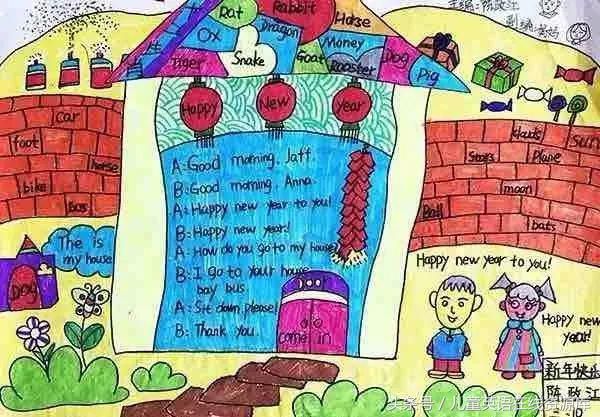 主编:陈政江
Rat
Rabbit
Horse
Ox
Dragon
Money
Tiger
Snake
Goat
Roaster
Dog
Pig
Happy
New
year
car
foot
horse
bike
bus
clouds
sun
Stars
Plane
moon
Ball
bats
A: Good morning, Jaff.
B: Good morning, Anna.
A: Happy new year to you!
B: Happy new year!
A: How do you go to my house
B: I go to your house
bay bus.
A: Sit down, please!
B: Thank you.
The is
my house
DOG
come in
Happy new year to you!
Happy new
year!
新年快乐
陈政江
头条号／儿童英语在线资源库